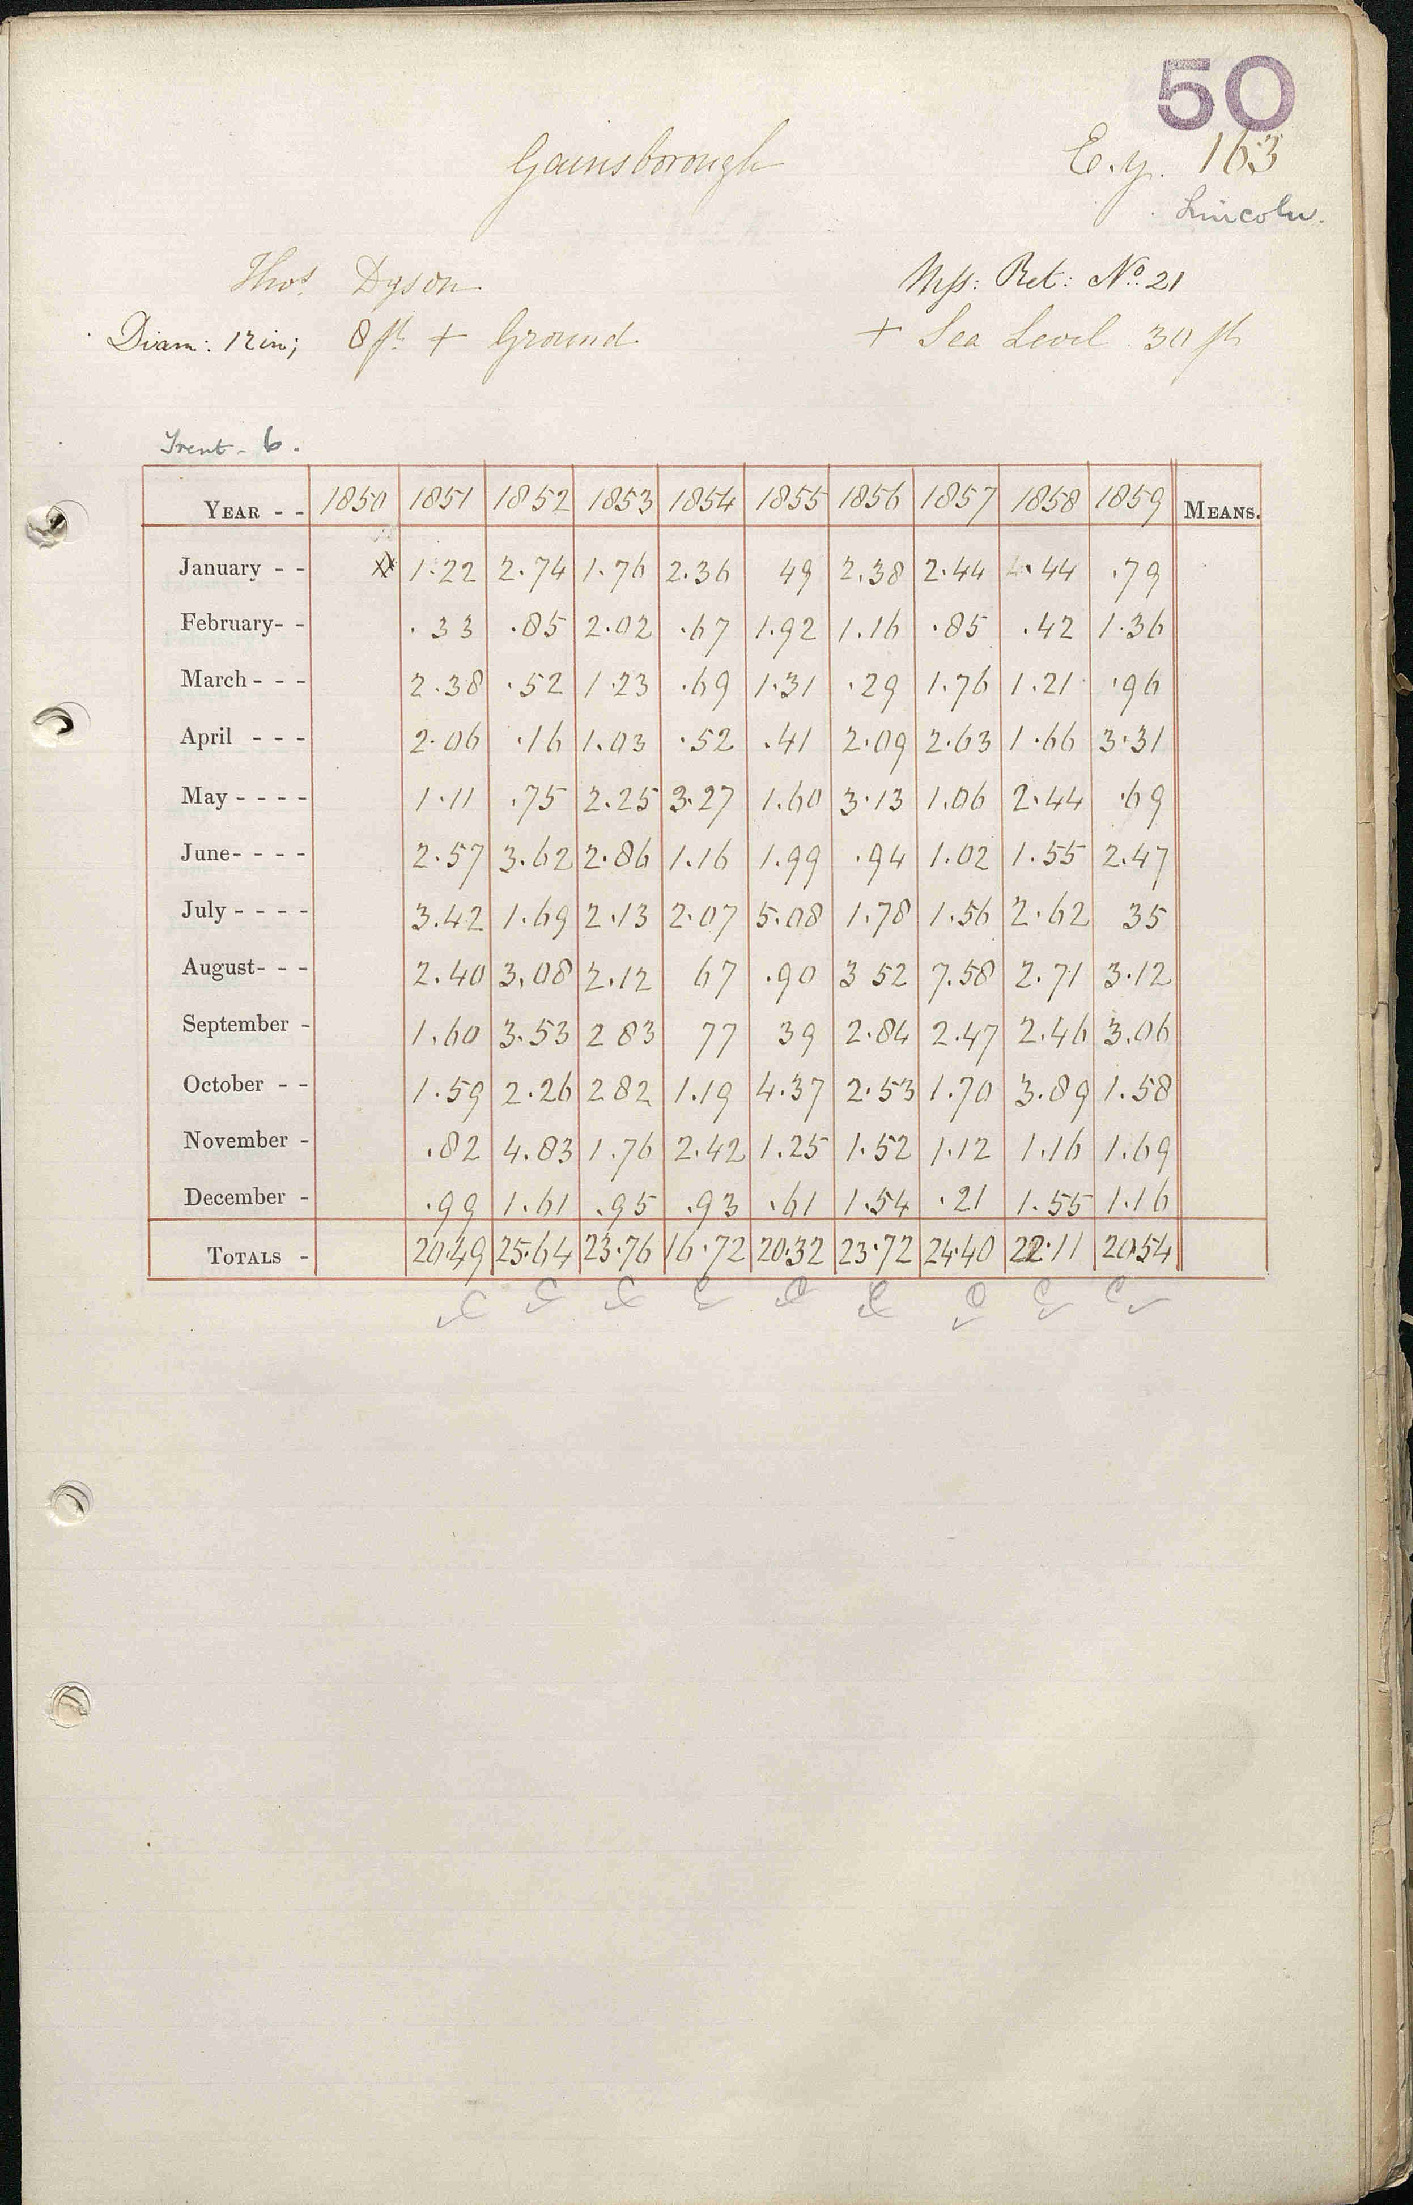 50
Gainsborough
E.y. 163
Lincoln.
Thos. Dyson
Mss: Ret: No. 21
Diam: 12 in; 8 ft + Ground
+ Sea Level 30 ft
Trent - 6.
YEAR - - 1850 1851 1852 1853 1854 1855 1856 1857 1858 1859 MEANS.
January - - 1.22 2.74 1.76 2.36 49 2.38 2.44 .44 .79
February- - .33 .85 2.02 .67 1.92 1.16 .85 .42 1.36
March - - - 2.38 .52 1.23 .69 1.31 .29 1.76 1.21 .96
April - - - 2.06 .16 1.03 .52 .41 2.09 2.63 1.66 3.31
May - - - - 1.11 .75 2.25 3.27 1.60 3.13 1.06 2.44 .69
June- - - - 2.57 3.62 2.86 1.16 1.99 .94 1.02 1.55 2.47
July - - - - 3.42 1.69 2.13 2.07 5.08 1.78 1.56 2.62 35
August- - - 2.40 3.08 2.12 67 .90 3 52 7.58 2.71 3.12
September - 1.60 3.53 2 83 77 39 2.84 2.47 2.46 3.06
October - - 1.59 2.26 2 82 1.19 4.37 2.53 1.70 3.89 1.58
November - .82 4.83 1.76 2.42 1.25 1.52 1.12 1.16 1.69
December - .99 1.61 .95 .93 .61 1.54 .21 1.55 1.16
TOTALS - 20.49 25.64 23.76 16.72 20.32 23.72 24.40 22.11 20.54